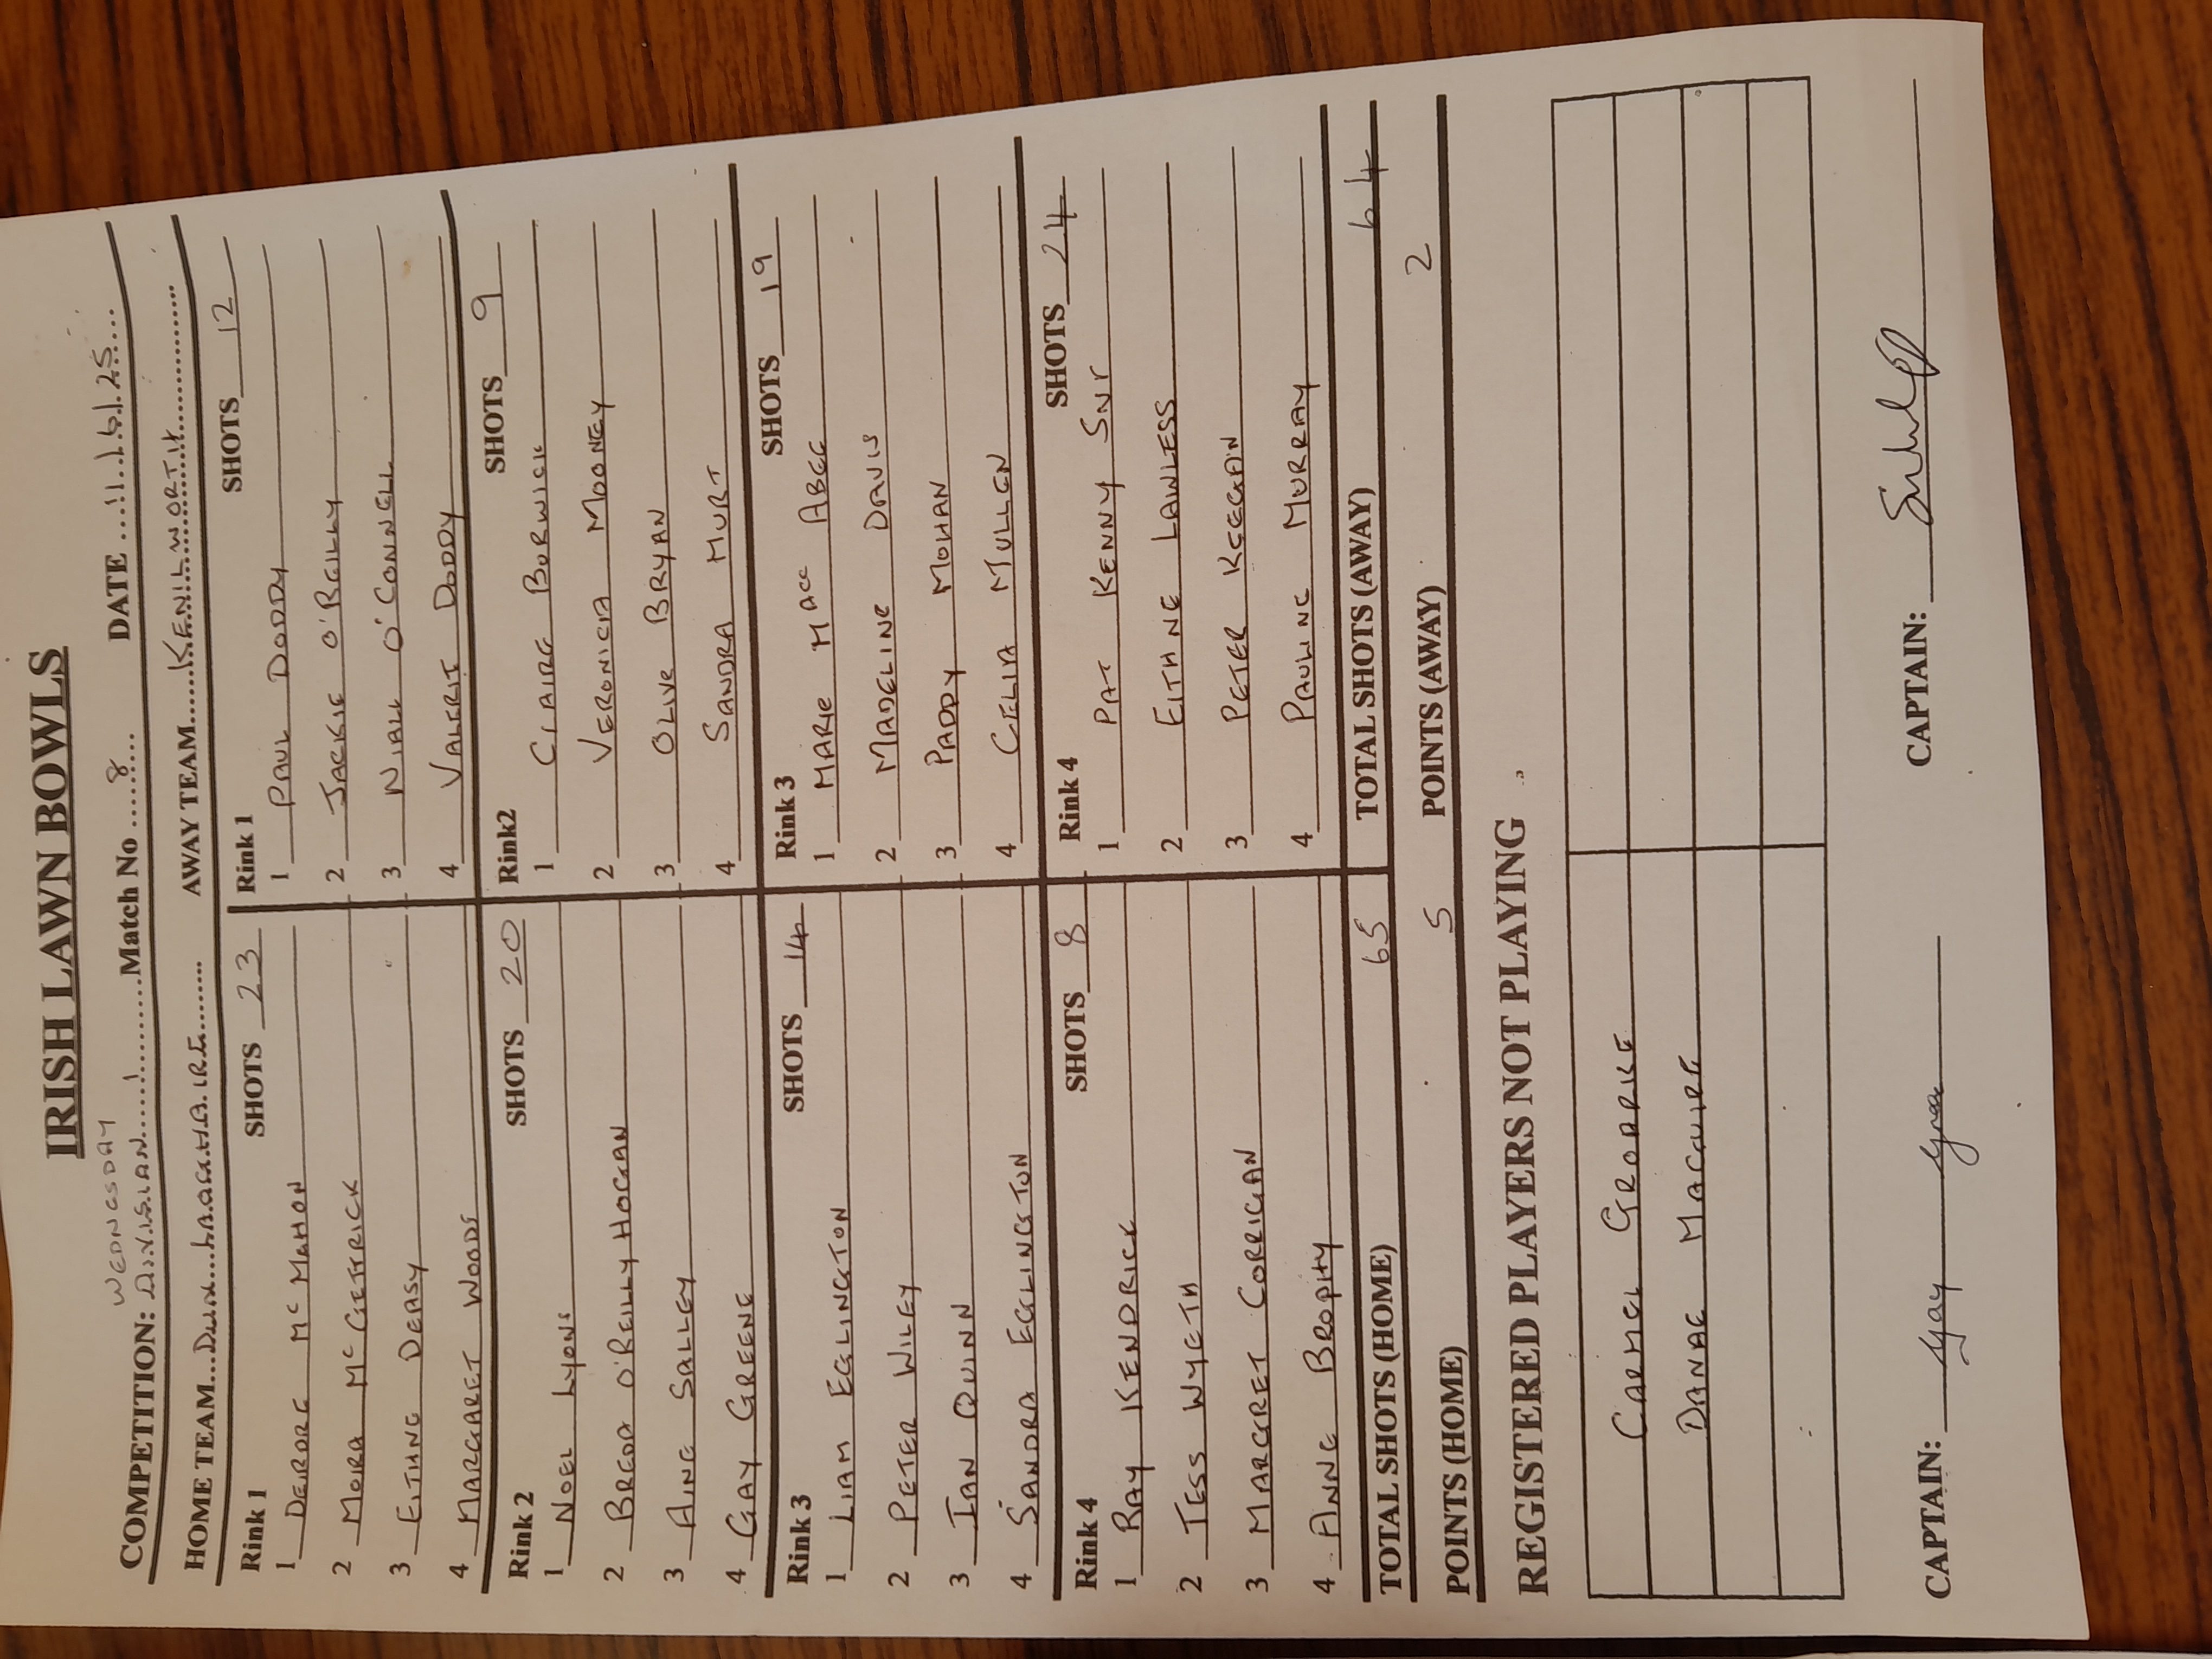 IRISH LAWN BOWLS
WEDNESDAY
COMPETITION: DIVISIAN 1 Match No 8 DATE 11/6/25
HOME TEAM DUN LAOGHAIRE AWAY TEAM KENILWORTH
Rink 1 SHOTS 23 Rink 1 SHOTS 12
1 DEIRDRE Mc MAHON 1 PAUL DODDY
2 MOIRA McGETTRICK 2 JACKIE O'REILLY
3 EITHNE DEASY 3 NIALL O'CONNELL
4 MARGARET WOODS 4 VALERIE DODDY
Rink 2 SHOTS 20 Rink2 SHOTS 9
1 NOEL LYONS 1 CLAIRE BORWICK
2 BREDA O'REILLY HOGAN 2 VERONICA MOONEY
3 AINE SALLEY 3 OLIVE BRYAN
4 GAY GREENE 4 SANDRA MURT
Rink 3 SHOTS 14 Rink 3 SHOTS 19
1 LIAM EGLINGTON 1 MARIE MAC ABEE
2 PETER WILEY 2 MADELINE DAVIS
3 IAN QUINN 3 PADDY MOHAN
4 SANDRA EGLINGTON 4 CELIA MULLEN
Rink 4 SHOTS 8 Rink 4 SHOTS 24
1 RAY KENDRICK 1 PAT KENNY SNr
2 TESS WYETH 2 EITHNE LAWLESS
3 MARGRET CORRIGAN 3 PETER KEEGAN
4 ANNE BROPHY 4 PAULINE MURRAY
TOTAL SHOTS (HOME) 65 TOTAL SHOTS (AWAY) 64
POINTS (HOME) 5 POINTS (AWAY) 2
REGISTERED PLAYERS NOT PLAYING
CARMEL GEOARKE
DANAE MAGUIRE
CAPTAIN: Gay CAPTAIN: